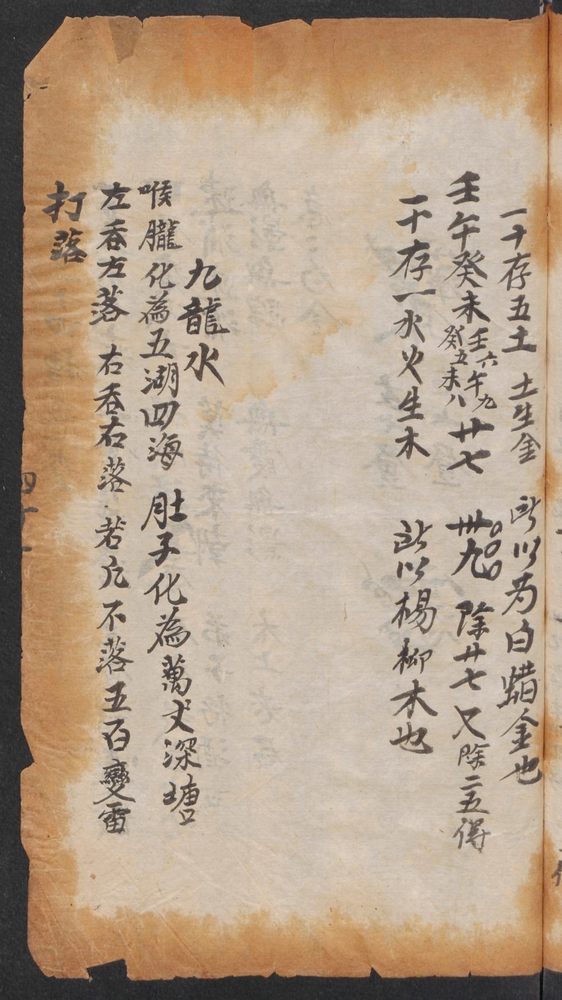 一十存五土 土生金 所以为白蜡金也
壬午癸未 壬六午九 癸五未八 卄七 卌九 除卄七又除二五得
一十存一水火生木 所以楊柳木也
九龍水
喉朧化為五湖四海 肚子化為萬丈深塘
左吞左落 右吞右落 若凢不落五百變雷
打落